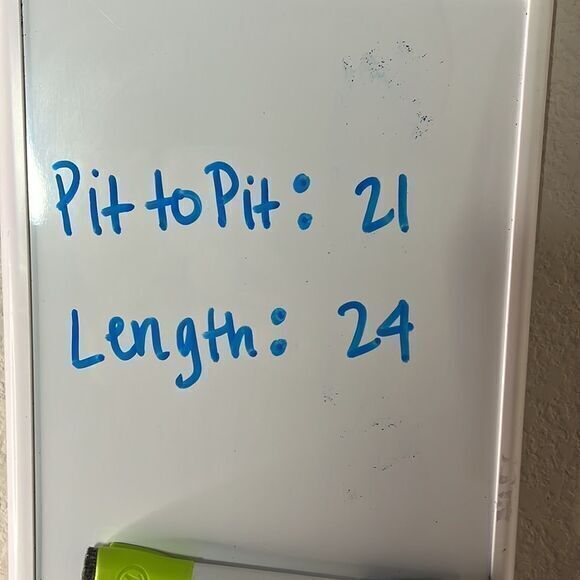 Pit to Pit: 21
Length: 24